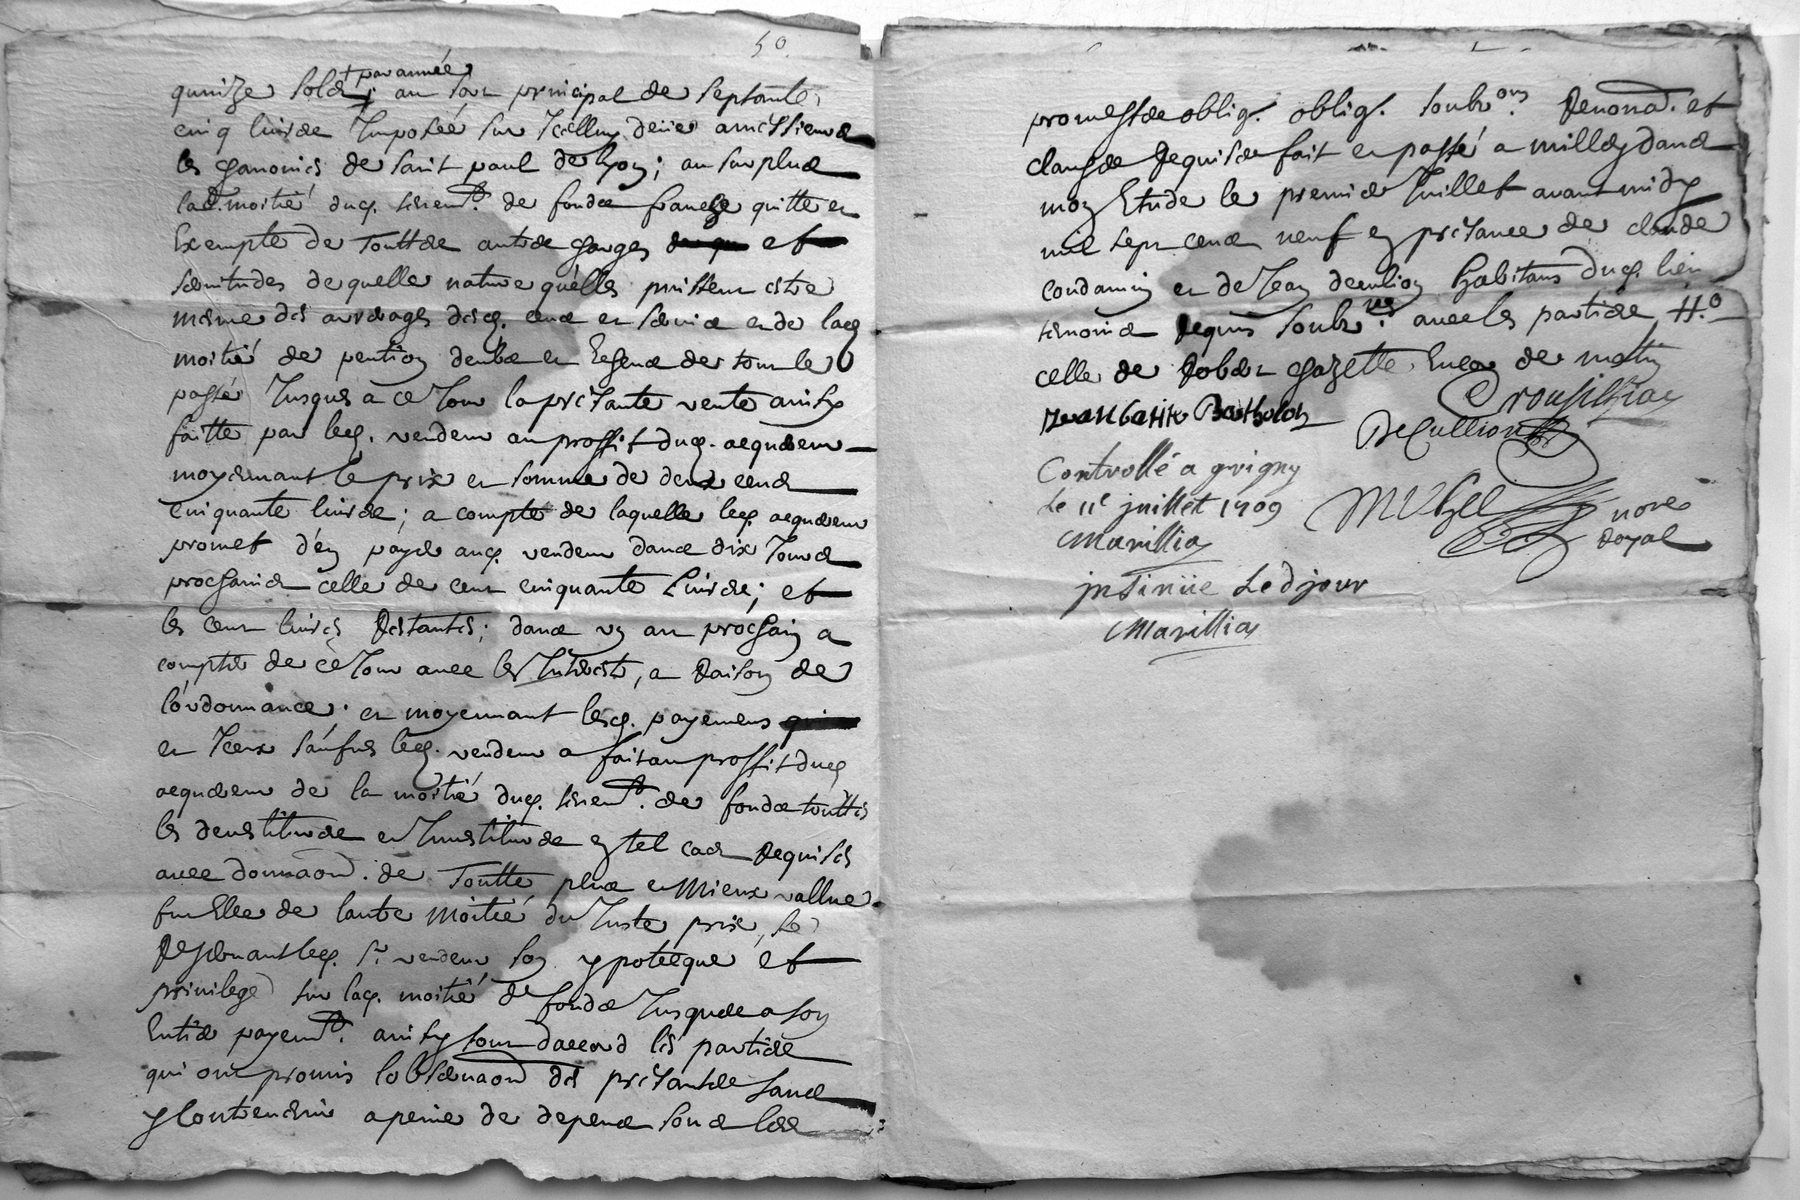 50.
+ par année
quinze sols + ; au sort principal de septante
cinq livres Imposéé sur Icelluy deue a messieurs
les chanonies de saint paul de lyon ; au surplus
lad. moitié dud. tenemt. de fonds franche quitte et
Exempte de touttes autres charges et
servitudes de quelle nature quélles puissent estre
mesme des arrerages desd. cens et servis et de lad.
moitié de pention deube et Echeue de tout le
passé Jusques a ce Jour la présante vente ainsy
faitte par led. vendeur au proffit dud. acquereur
moyennant le prix et somme de deux cents
cinquante livres ; a compte de laquelle led. acquereur
promet d'en payer aud. vendeur dans dix Jours
prochains celle de cent cinquante Livres ; et
les cent livres Restantes ; dans un an prochain a
compter de ce Jour avec les Interests, a Raison de
l'ordonnance ; et moyennant lesd. payemens
et Iceux led. vendeur a fait au proffit dud.
acquereur de la moitié dud. tenemt. de fonds touttes
les devestitures et Investitures en tel cas Requises
avec donnaon. de toutte plus et Mieux vallue
fut Elle de lautre moitié du Juste prix, se
Reservant led. sr. vendeur son ypoteeque et
privilege sur lad. moitié de fonds Jusques a son
Entier payemt. ainsy sont daccord les parties
qui ont promis lobservaon des présantes sans
y Contrevenir a peine de depens sous les
promesses oblig. oblig. soubzons. Renonaō. et
clauses Requises fait et passé a millery dans
mon Etude le premier Juillet avant midy
mil sept cens neuf en présance de claude
condamin et de Jean habitans dud. lieu
tesmoins Requis soubznés. avec les parties
celle de Rober chazette
Jean batiste Bartholot
Decullion
Controllé a grigny
Le 11e juillet 1709
Marillia
nore
Royal
jnsinüe Led jour
Marillia